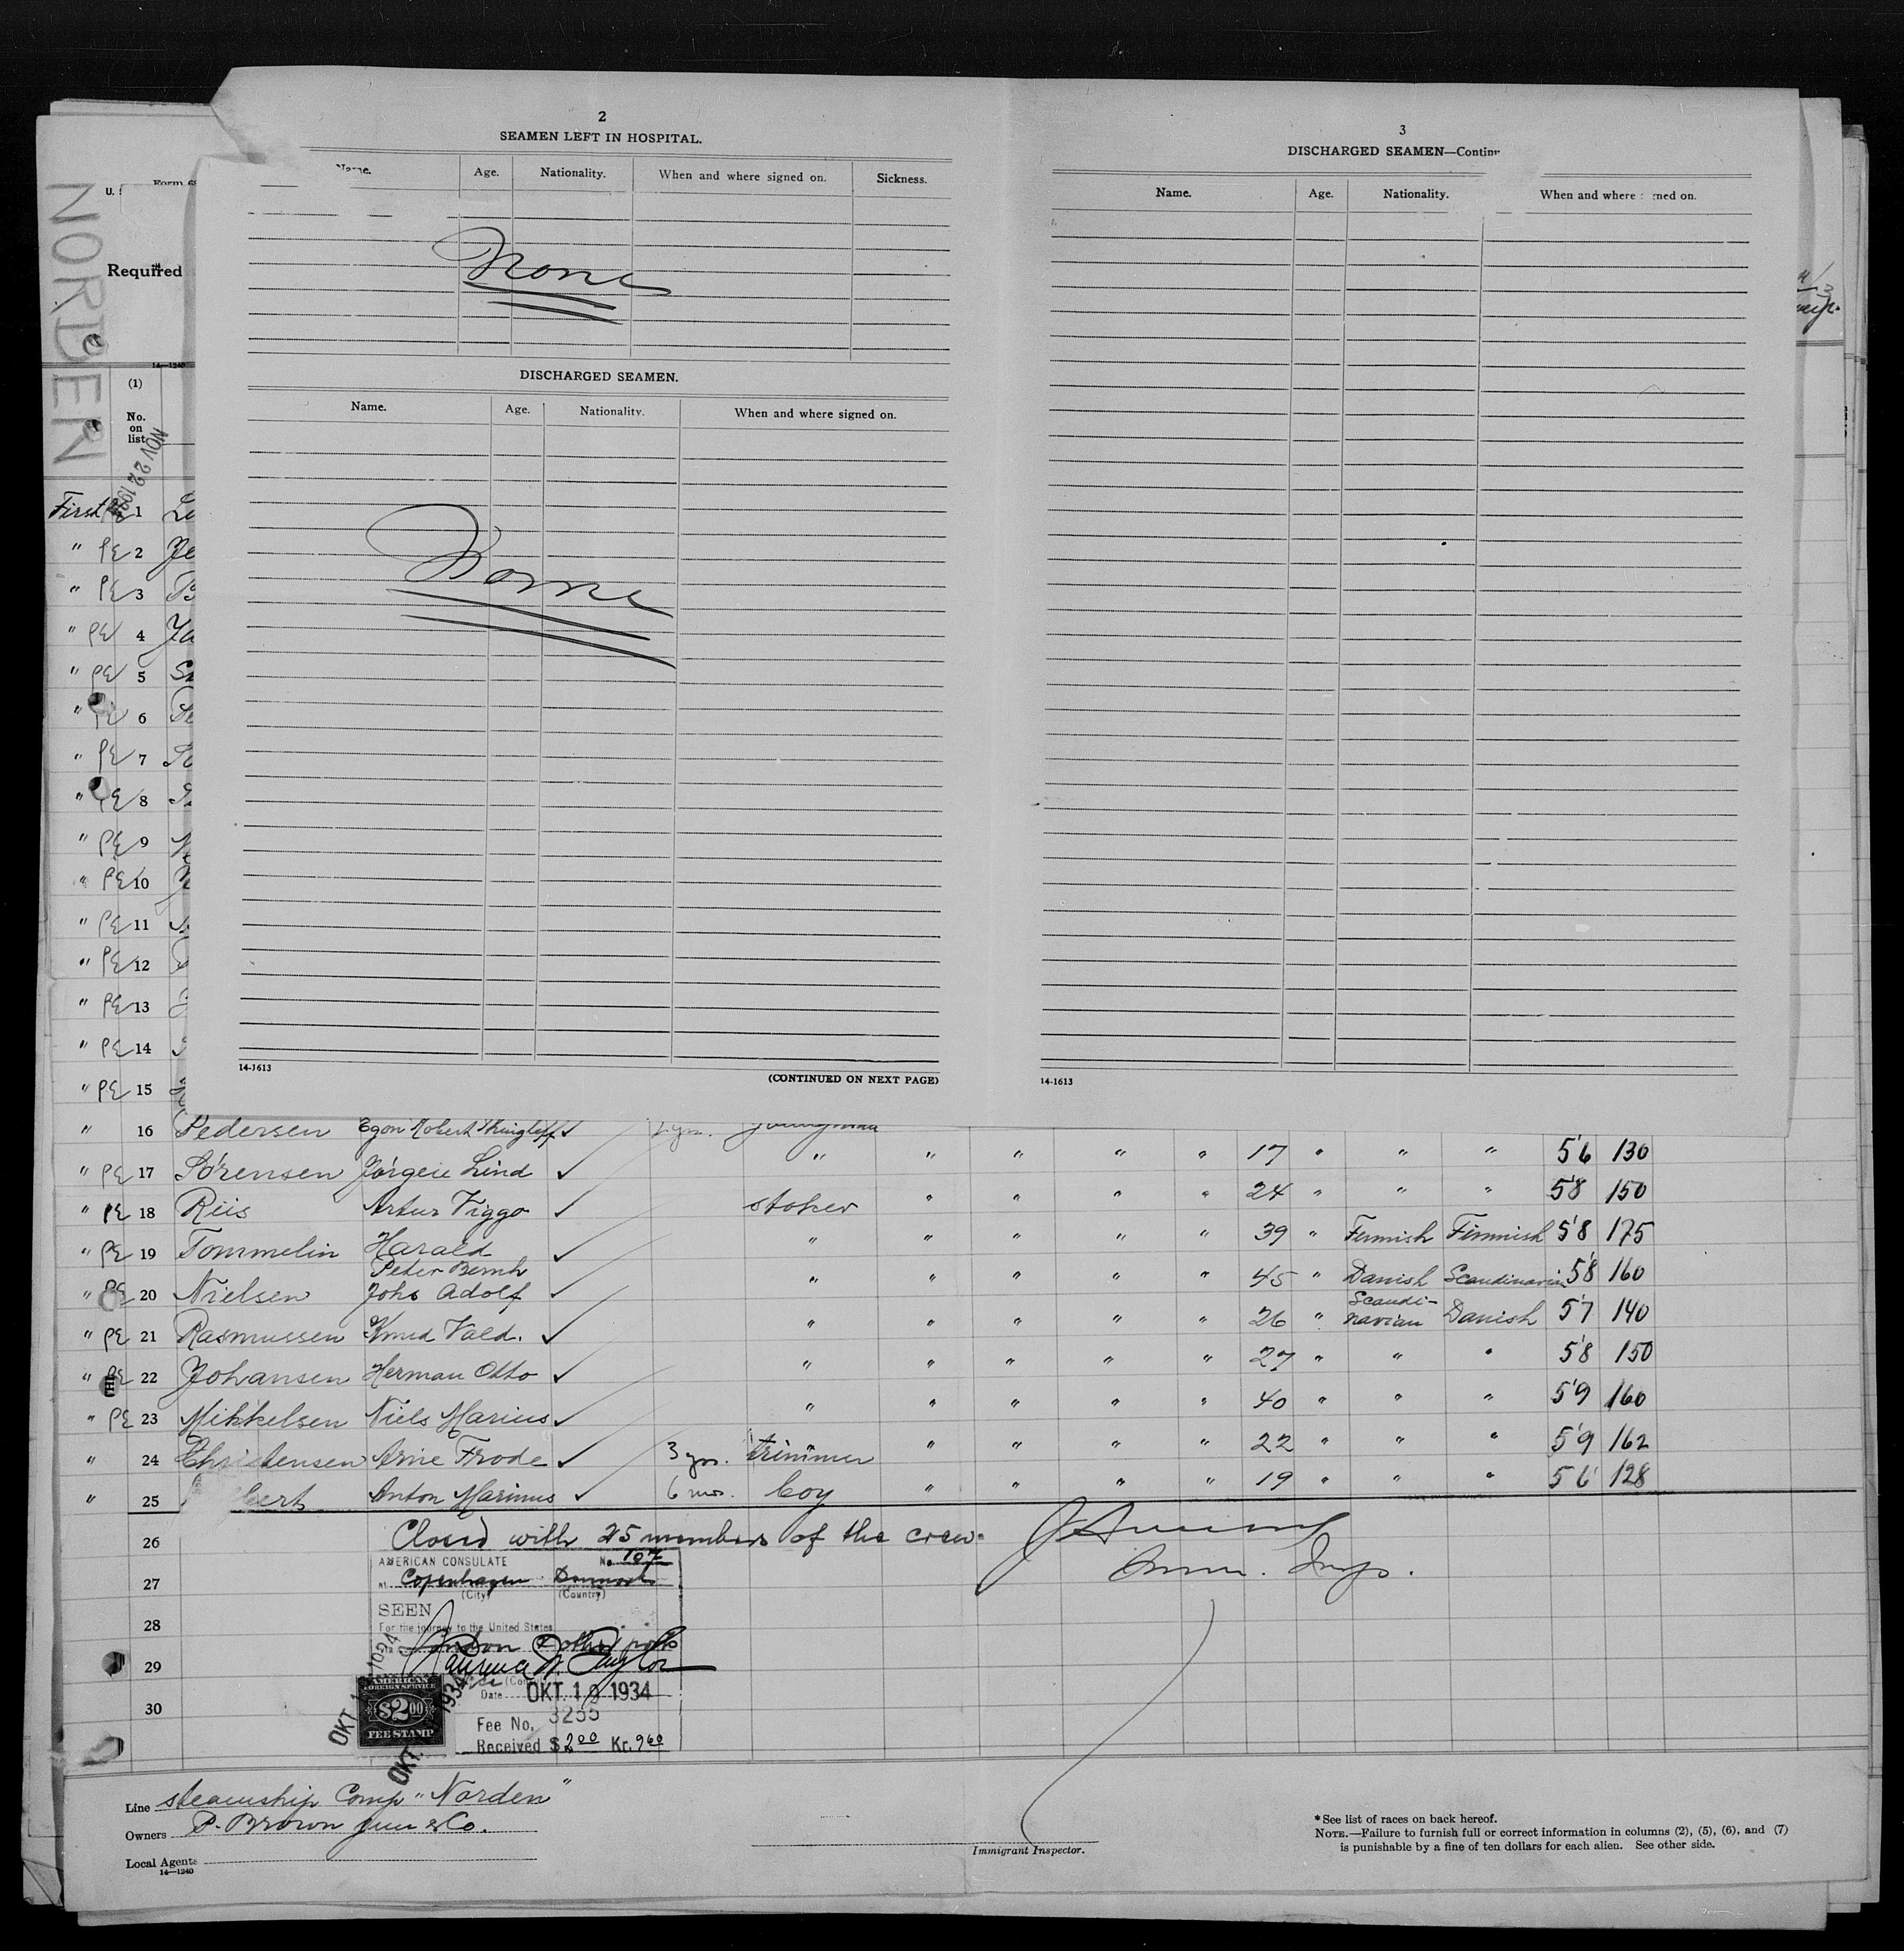 2
SEAMEN LEFT IN HOSPITAL.
Name. Age. Nationality. When and where signed on. Sickness.
None
DISCHARGED SEAMEN.
Name. Age. Nationality. When and where signed on.
None
14-1613
(CONTINUED ON NEXT PAGE)
3
DISCHARGED SEAMEN—Contin
Name. Age. Nationality. When and where ned on.
14-1613
NORDEN
U. S
Form 68
Required
14—1240
(1)
No.
on
list
NOV 22 193
First 1
" PE 2
" PE 3
" PE 4
" PE 5
" PE 6
" PE 7
" PE 8
" PE 9
" PE 10
" PE 11
" PE 12
" PE 13
" PE 14
" PE 15
" 16 Pedersen Egon Robert
" PE 17 Sørensen Jørgen Lind ✓ " " " " " 17 " " " 5'6 130
" PE 18 Riis Artur Viggo ✓ stoker " " " " 24 " " " 5'8 150
" PE 19 Tommelin Harald ✓ " " " " " 39 " Finnish Finnish 5'8 175
" PE 20 Nielsen Peter Bernh Johs Adolf ✓ " " " " " 45 " Danish Scandinavian 5'8 160
" PE 21 Rasmussen Knud Vald. ✓ " " " " " 26 " Scandi-navian Danish 5'7 140
" PE 22 Johansen Herman Otto ✓ " " " " " 27 " " " 5'8 150
" PE 23 Mikkelsen Niels Marius ✓ " " " " " 40 " " " 5'9 160
" 24 Christensen Arne Frode ✓ 3 yrs. trimmer " " " " 22 " " " 5'9 162
" 25 Anton Marinus ✓ 6 mos. boy " " " " 19 " " " 5'6 128
26 Closed with 25 members of the crew.
Imm. Insp.
27
28
29
30
AMERICAN CONSULATE No. 107
At Copenhagen Denmark
(City) (Country)
SEEN
For the journey to the United States
Date OKT 19 1934
Fee No. 3255
Received $ 2 00 Kr. 9 60
AMERICAN
FOREIGN SERVICE
$2 00
FEE STAMP
OKT
1934
OKT.
Line steamship Comp "Norden"
Owners P. Brown jun & Co.
Local Agents
14—1240
Immigrant Inspector.
* See list of races on back hereof.
NOTE.—Failure to furnish full or correct information in columns (2), (5), (6), and (7)
is punishable by a fine of ten dollars for each alien. See other side.